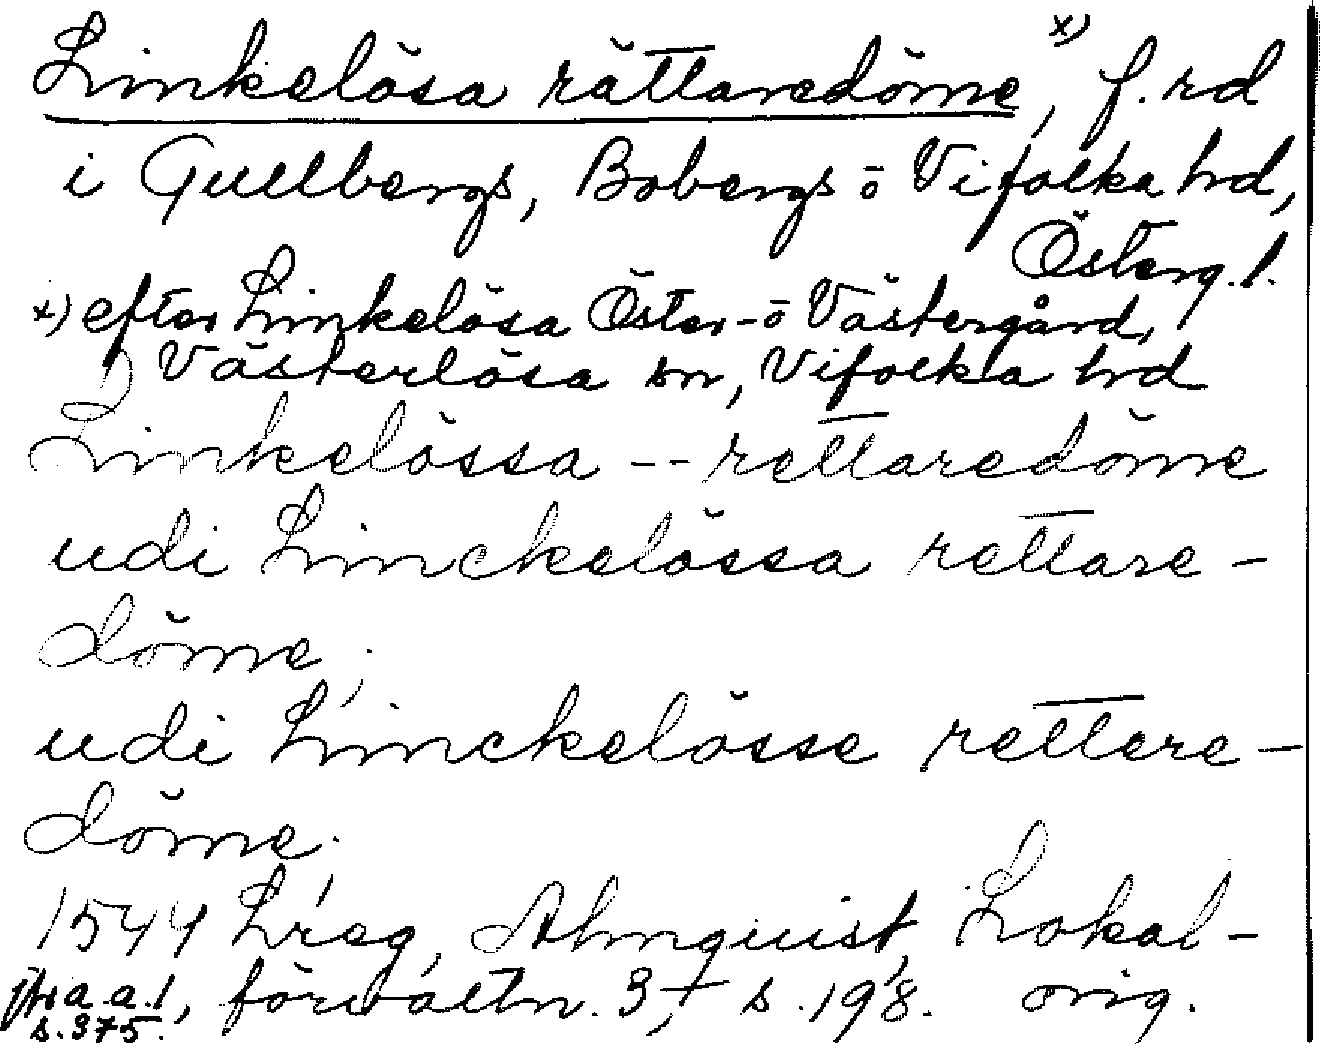 Linkelösa rättaredöme, x) f. rd
i Gullbergs, Bobergs o Vifolka hd,
Österg. l.
x) efter Linkelösa Öster- o Västergård,
Västerlösa sn, Vifolka hd
Linkelössa -- rettaredöme
udi Linckelössa rettare-
döme;
udi Linckelösse rettere-
döme;
1544 Lreg, Almquist, Lokal-
förvaltn. 3, s. 198. orig.
jfr a.a. 1,
s. 375.